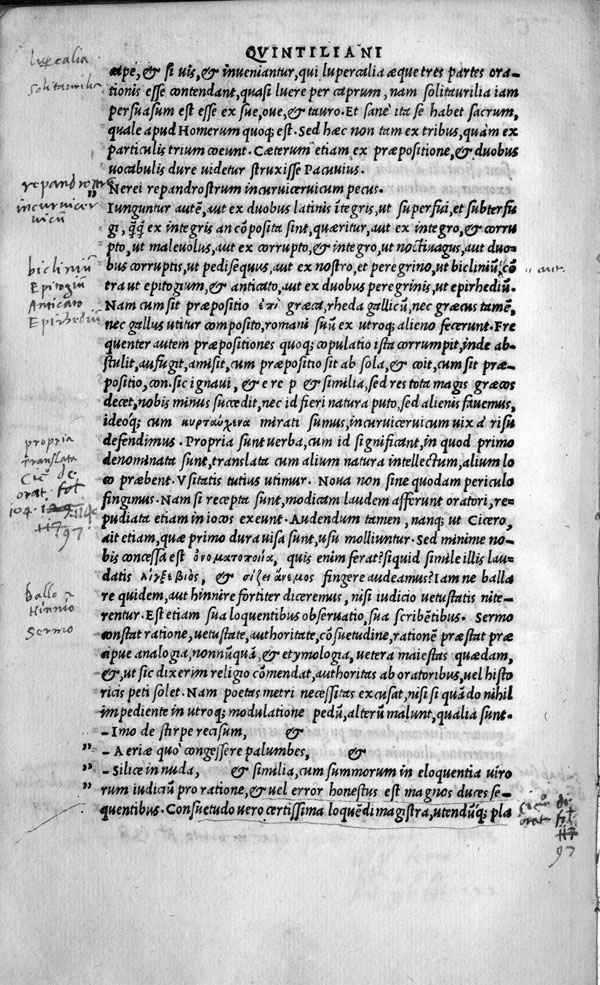 QVINTILIANI
cipé, & si uis, & inueniantur, qui lupercalia æque tres partes ora-
tionis esse contendant, quasi luere per caprum, nam solitaurilia iam
persuasum est esse ex sue, oue, & tauro. Et sanè ita se habet sacrum,
quale apud Homerum quoq; est. Sed hæc non tam ex tribus, quàm ex
particulis trium coeunt. Cæterum etiam ex præpositione, & duobus
uocabulis dure uidetur struxisse Pacuuius.
" Nerei repandrostrum incuruiceruicum pecus.
Iunguntur autē, aut ex duobus latinis ītegris, ut superfui, et subterfu
gi, q̃q̃ ex integris an cōposita sint, quæritur, aut ex integro, & corru
pto, ut maleuolus, aut ex corrupto, & integro, ut noctiuagus, aut duo-
bus corruptis, ut pedisequus, aut ex nostro, et peregrino, ut bicliniū, cō
tra ut epitogium, & anticato, aut ex duobus peregrinis, ut epirhediū.
Nam cum sit præpositio ἐπὶ græca, rheda gallicū, nec græcus tamē,
nec gallus utitur composito, romani suū ex utroq; alieno fecerunt. Fre
quenter autem præpositiones quoq; copulatio ista corrumpit, inde ab-
stulit, aufugit, amisit, cum præpositio sit ab sola, & coit, cum sit præ-
positio, con. sic ignaui, & e re p & similia, sed res tota magis græcos
decet, nobis minus succedit, nec id fieri natura puto, sed alienis fauemus,
ideoq; cum κυρταύχενα mirati sumus, incuruiceruicum uix à risu
defendimus. Propria sunt uerba, cum id significant, in quod primo
denominata sunt, translata cum alium natura intellectum, alium lo
co præbent. Vsitatis tutius utimur. Noua non sine quodam periculo
fingimus. Nam si recepta sunt, modicam laudem afferunt oratori, re-
pudiata etiam in iocos exeunt. Audendum tamen, nanq; ut Cicero,
ait etiam, quæ primo dura uisa sunt, usu molliuntur. Sed minime no-
bis concessa est ὀνοματοποιία, quis enim ferat? siquid simile illis lau-
datis λίγξεβιὸς, & σίζει ἄνεμος fingere audeamus? Iam ne balla
re quidem, aut hinnire fortiter diceremus, nisi iudicio uetustatis nite-
rentur. Est etiam sua loquentibus obseruatio, sua scribētibus. Sermo
constat ratione, uetustate, authoritate, cōsuetudine, rationē præstat præ
cipue analogia, nonnūquā, & etymologia, uetera maiestas quædam,
&, ut sic dixerim religio cōmendat, authoritas ab oratoribus, uel histo
ricis peti solet. Nam poetas metri necessitas excusat, nisi si quādo nihil
impediente in utroq; modulatione pedū, alterū malunt, qualia sunt.
- Imo de stirpe recisum, &
" - Aeriæ quo congessere palumbes, &
" - Silice in nuda, & similia, cum summorum in eloquentia uiro
" rum iudiciū pro ratione, & uel error honestus est magnos duces se-
quentibus. Consuetudo uero certissima loquēdi magistra, utendūq; pla
lupercalia
solitaurilia
repandrostrū
incuruicer
uicū
bicliniū
Epitogiū
Anticato
Epirhediū
aut.
propria
translata
Cic. de
orat. fol.
104.
97
ballo
Hinnio
Sermo
Cic. de
orat. fol.
97